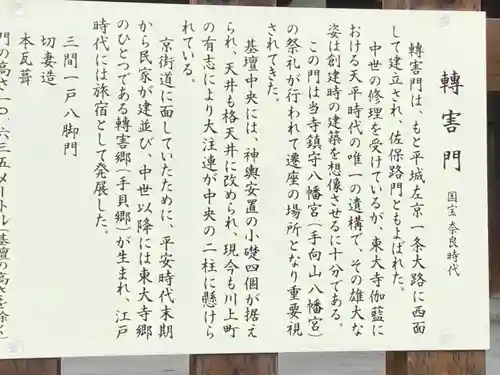 轉害門
国宝 奈良時代
轉害門は、もと平城左京一条大路に西面
して建立され、佐保路門ともよばれた。
中世の修理を受けているが、東大寺伽藍に
おける天平時代の唯一の遺構で、その雄大な
姿は創建時の建築を想像させるに十分である。
この門は当寺鎮守八幡宮（手向山八幡宮）
の祭礼が行われて遷座の場所となり重要視
されてきた。
基壇中央には、神輿安置の小礎四個が据え
られ、天井も格天井に改められ、現今も川上町
の有志により大注連が中央の二柱に懸けら
れている。
京街道に面していたために、平安時代末期
から民家が建並び、中世以降には東大寺郷
のひとつである轉害郷（手貝郷）が生まれ、江戸
時代には旅宿として発展した。
三間一戸八脚門
切妻造
本瓦葺
門の高さ一〇.六三五メートル（基壇の高さを除く）